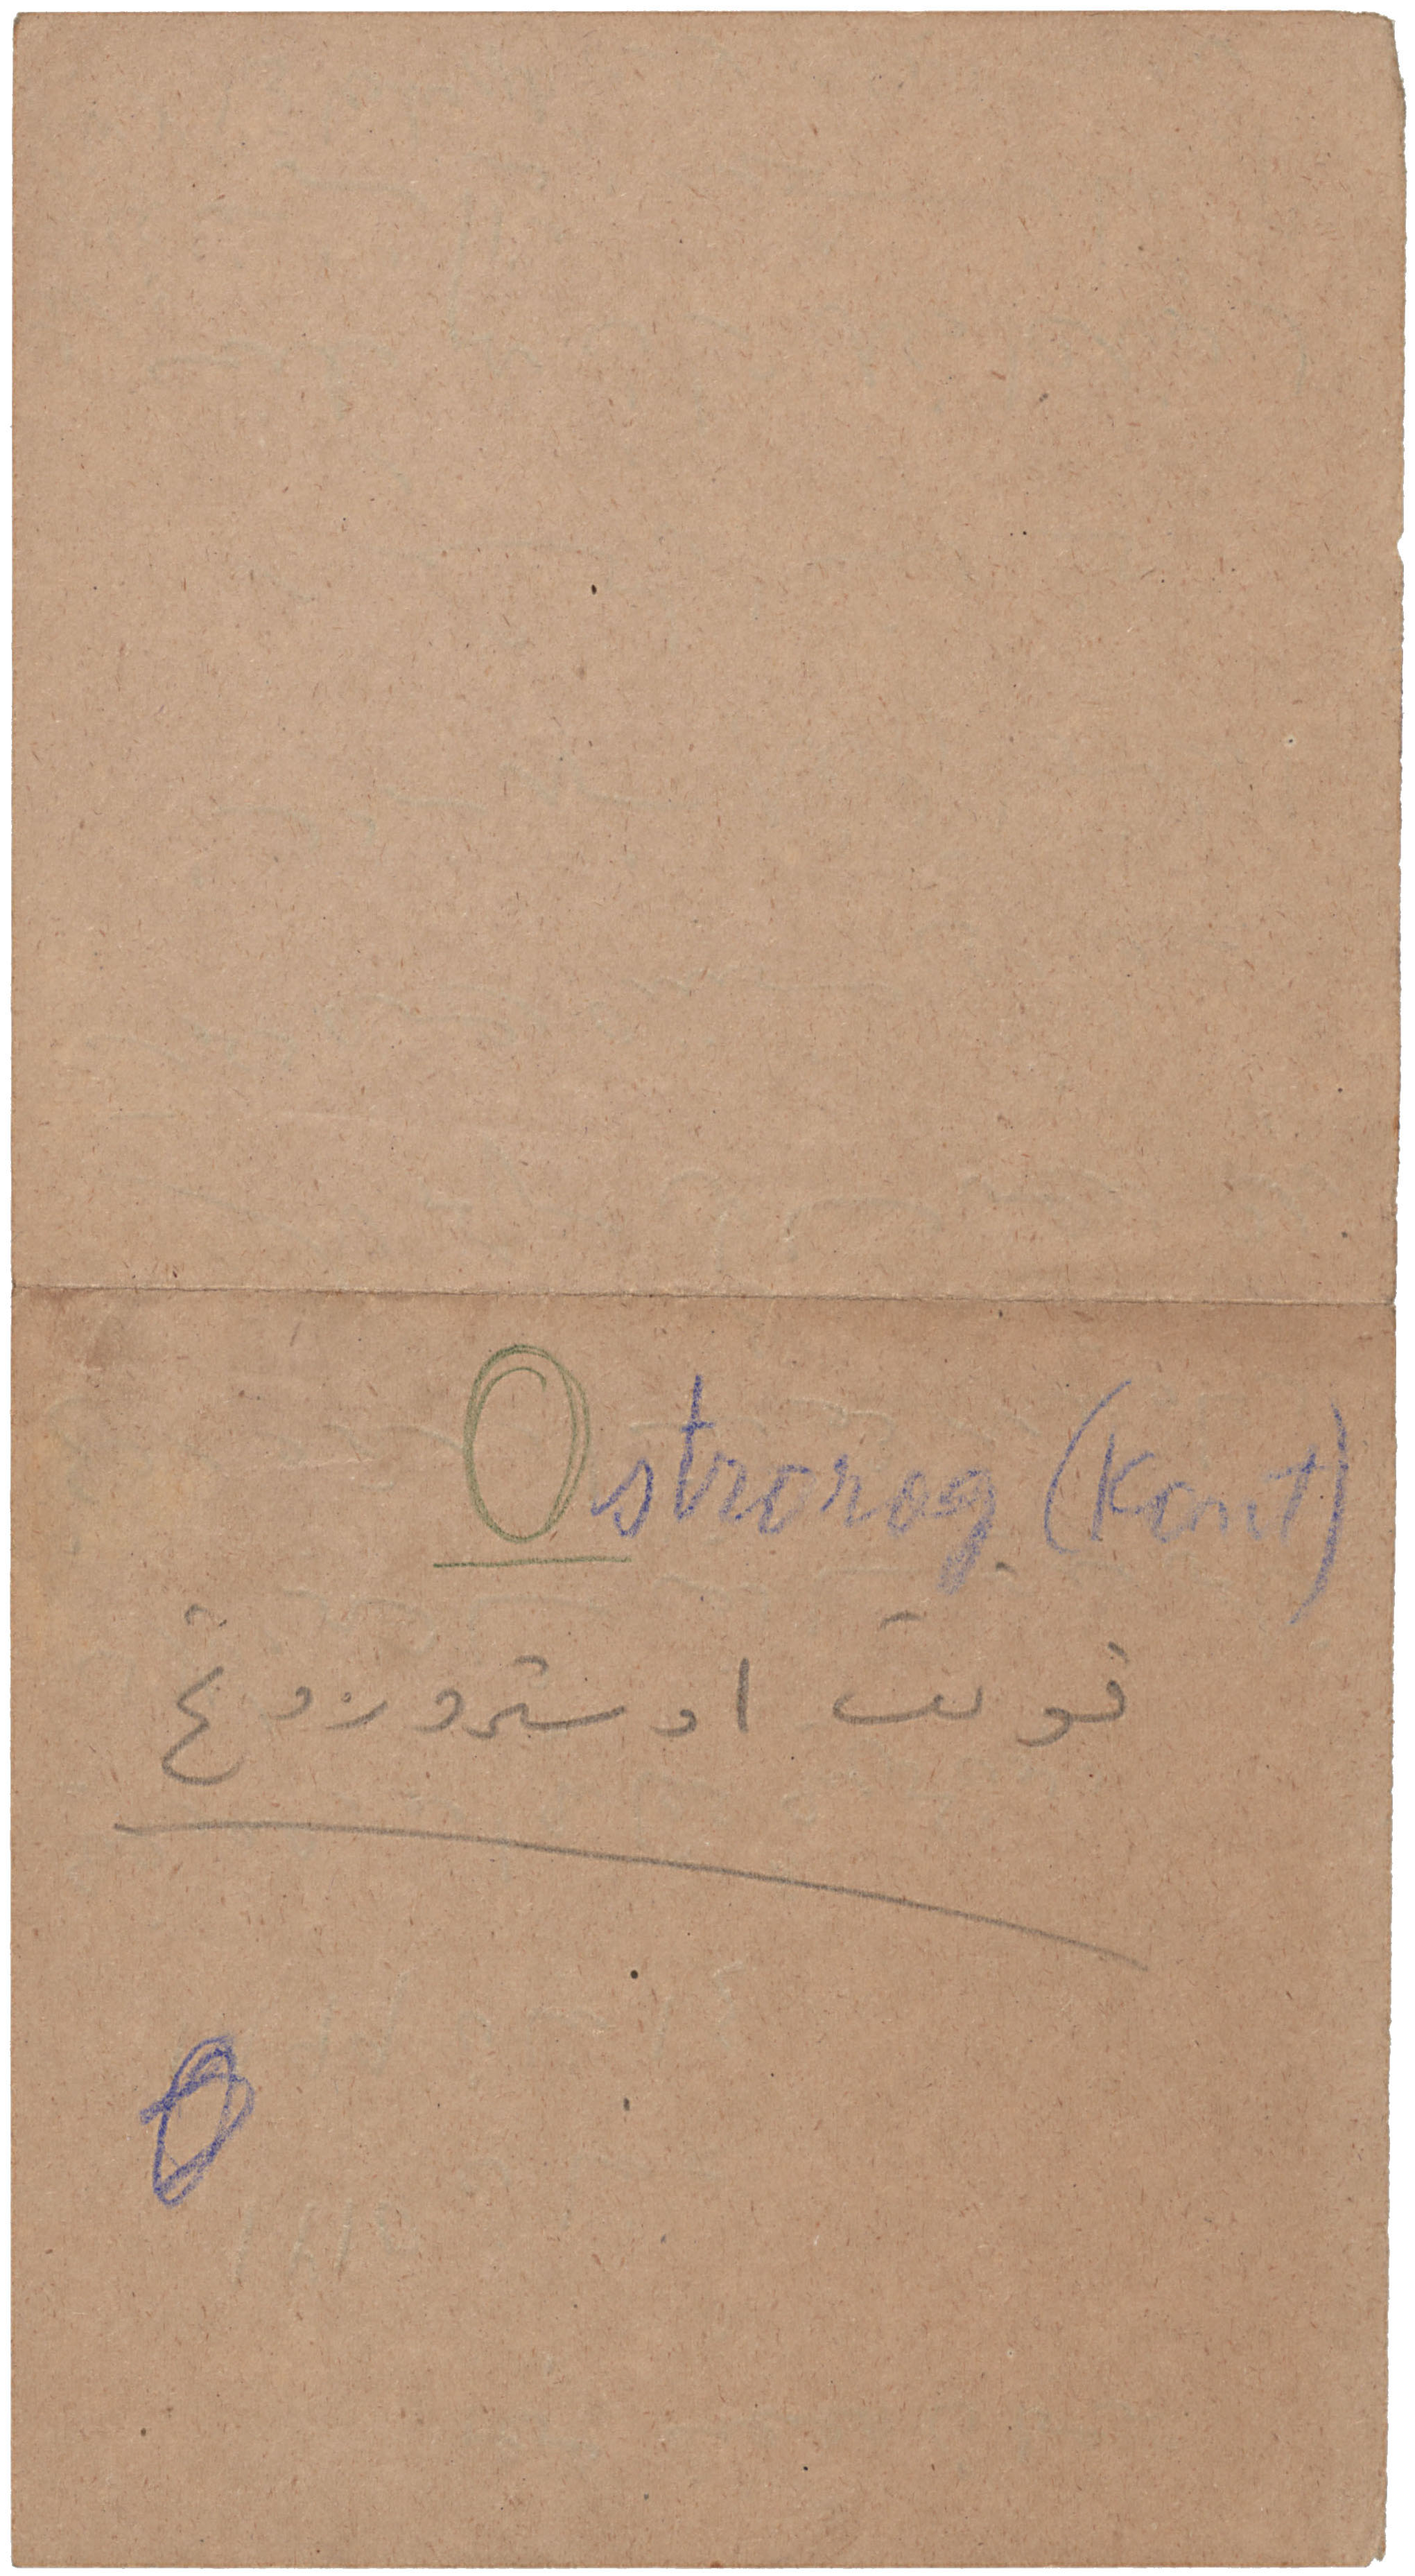 Ostrorog (Kont)
قونت اوستروروغ
O